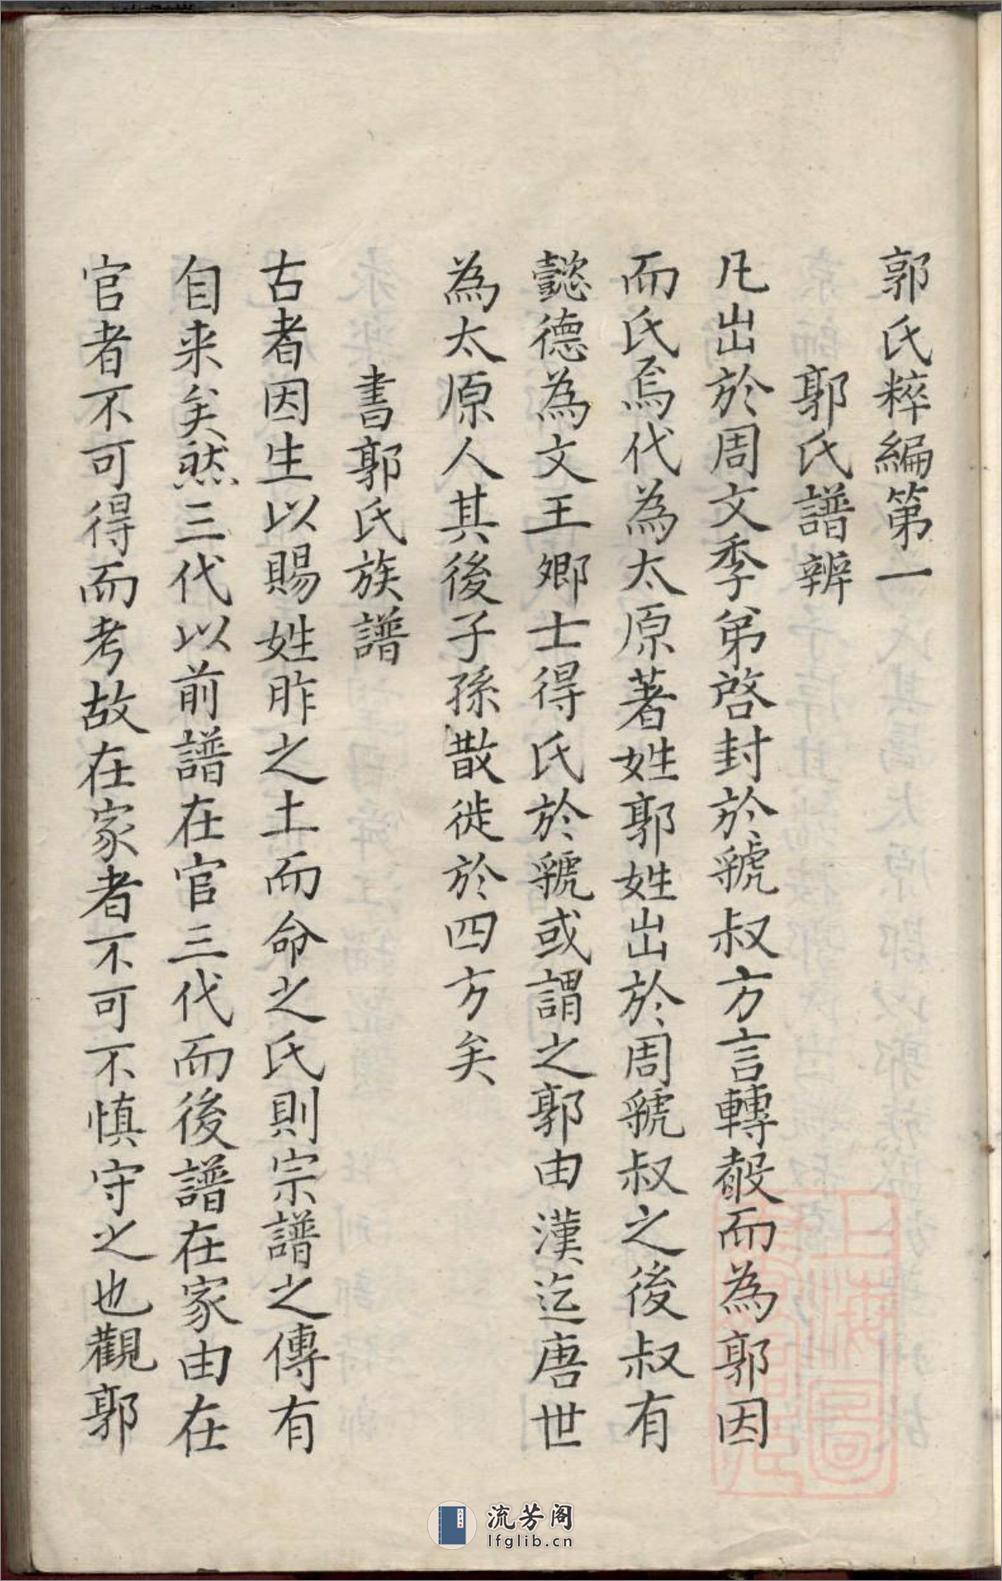 郭氏粹編第一
郭氏譜辨
凡出於周文季弟啓封於虢叔方言轉𣪊而為郭因
而氏焉代為太原著姓郭姓出於周虢叔之後叔有
懿德為文王卿士得氏於虢或謂之郭由漢迄唐世
為太原人其後子孫散徙於四方矣
書郭氏族譜
古者因生以賜姓昨之土而命之氏則宗譜之傳有
自来矣然三代以前譜在官三代而後譜在家由在
官者不可得而考故在家者不可不慎守之也觀郭
流芳阁
lfglib.cn